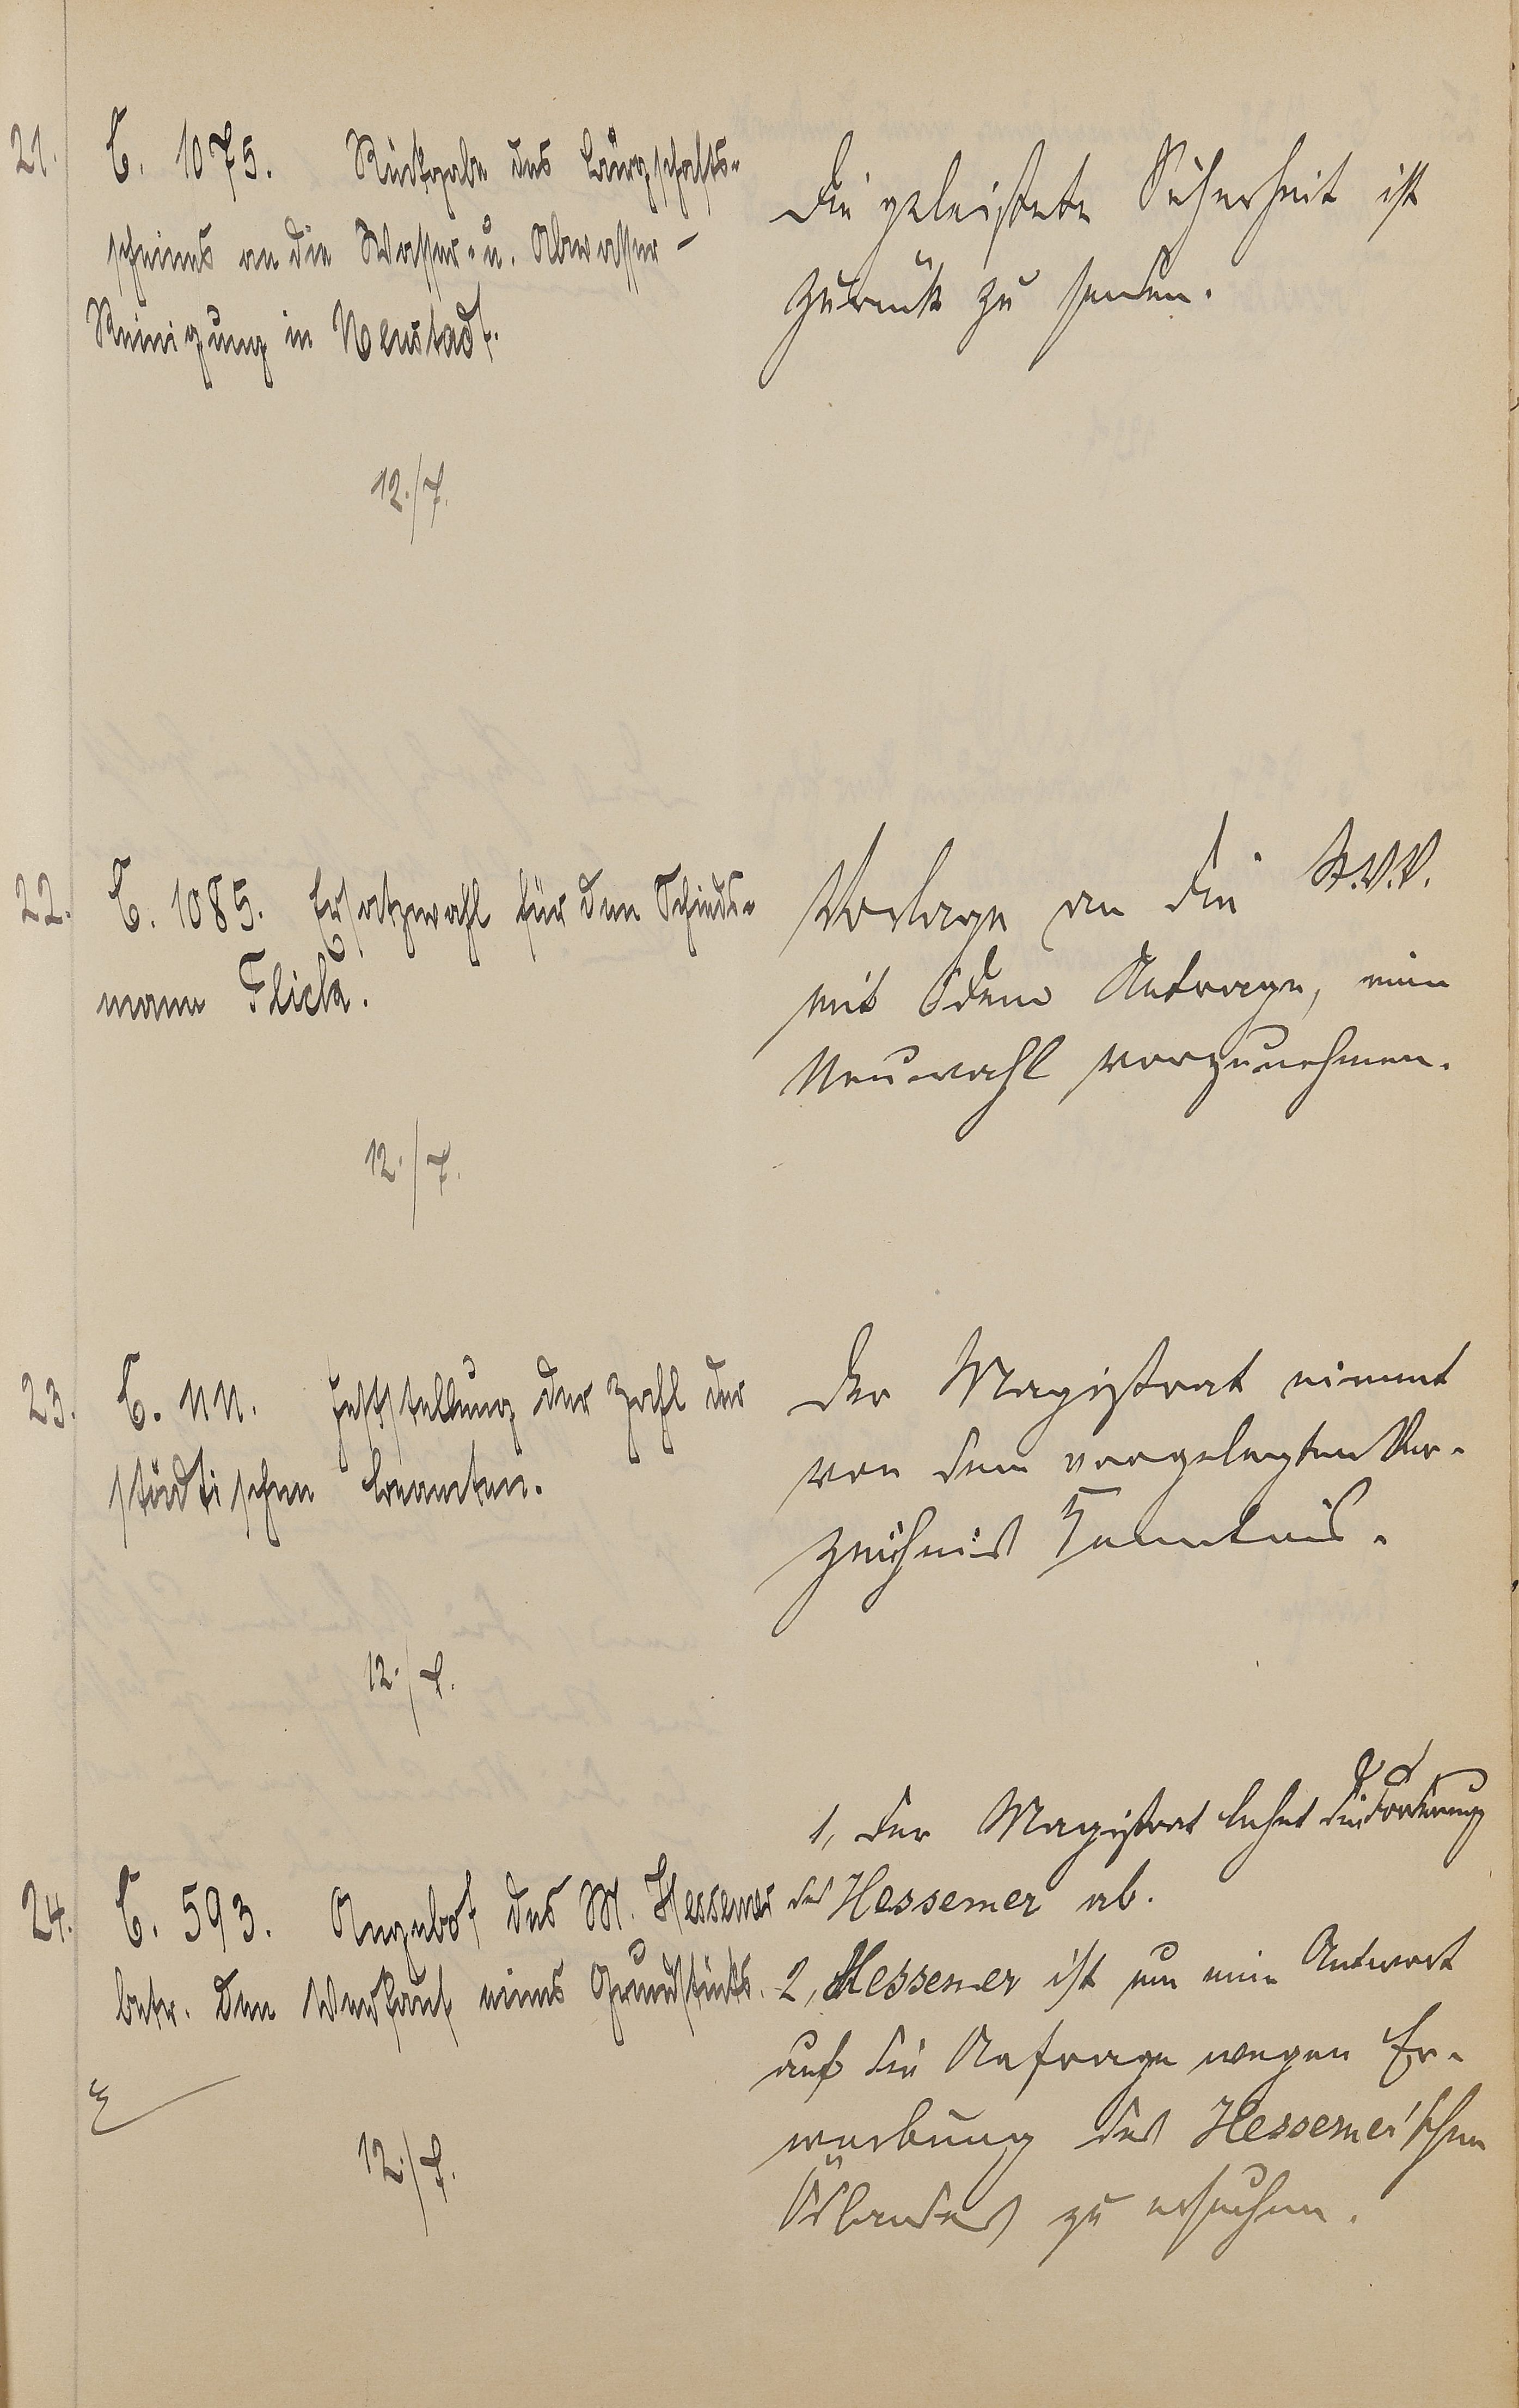 21. C. 1075. Rückgabe des Bürgschafts-
scheines an die Wasser- u. Abwasser-
Reinigung in Neustadt.
12./7.
Die geleistete Sicherheit ist
zurück zu senden.
22. C. 1085. Ersatzwahl für den Schieds-
mann Flick.
12./7.
Vorlage an die St.V.V.
mit dem Antrage, eine
Neuwahl vorzunehmen.
23. C. 1111. Feststellung der Zahl der
städtischen Beamten.
12./7.
Der Magistrat nimmt
von dem vorgelegten Ver-
zeichnis Kenntnis.
24. C. 593. Angebot des M. Hessemer
betr. den Verkauf eines Grundstücks.
12./7.
1, Der Magistrat lehnt die Forderung
des Hessemer ab.
2, Hessemer ist um eine Antwort
auf die Anfrage wegen Er-
werbung des Hessemer'schen
Ödlandes zu ersuchen.